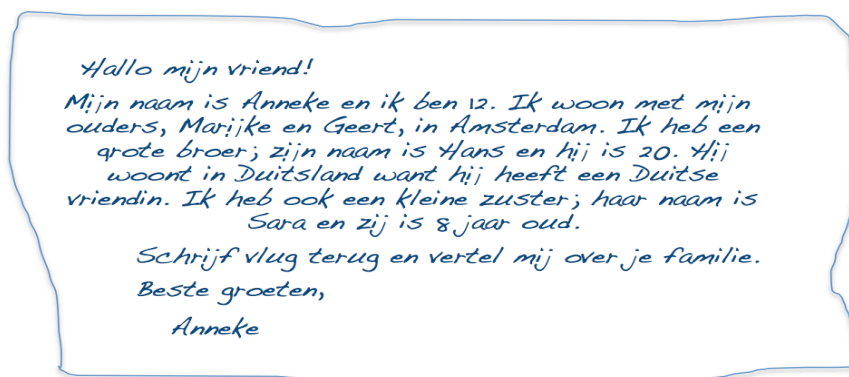 Hallo mijn vriend!
Mijn naam is Anneke en ik ben 12. Ik woon met mijn
ouders, Marijke en Geert, in Amsterdam. Ik heb een
grote broer; zijn naam is Hans en hij is 20. Hij
woont in Duitsland want hij heeft een Duitse
vriendin. Ik heb ook een kleine zuster; haar naam is
Sara en zij is 8 jaar oud.
Schrijf vlug terug en vertel mij over je familie.
Beste groeten,
Anneke